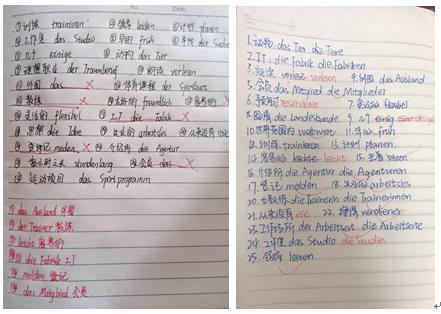 ①训练 trainieren ② leiten ③计划 planen
④工作室 das Studio ⑤早的 früh ⑥寻找 die Suche
⑦几个 einige ⑧动物 das Tier
⑨理想职业 der Traumberuf ⑩朗读 vorlesen
外国 das 体育课程 der Sportkurs
教练 友好的 freundlich 容易的
灵活的 flexibel 工厂 die Fabik
思想 die Idee 失业的 arbeitslos 从来没有 nie
登记 meden 介绍所 die Agentur
数小时之久 stundenlang 会员 das
运动项目 das Sportprogramm
das Ausland 外国
der Trainer 教练
leicht 容易的
die Fabrik 工厂
melden 登记
das Mitglied 会员
1.动物 das Tier die Tiere
2.工厂 die Fabik die Fabriken
3.朗读 vorlese vorlesen 4.外国 das Ausland
5.会员 das Mitglied die Mitglieder
6. reservieren 7. flexibel
8.国情 die Landeskunde 9.几个 einige
10.世界范围内 weltweit 11.早的 früh
12.训练 trainieren 13.计划 planen
14.容易的 leichte leicht 15. reisen
16.介绍所 die Agentur die Agenturen
17.登记 melden 18.失业的 arbeitslos
20.女教练 die Trainerin die Trainerinnen
21.从来没有 nie 22.挣得 verdienen
23.工作 der Arbeitsort die Arbeitsorte
24.工作室 das Studio die Studios
25. lernen